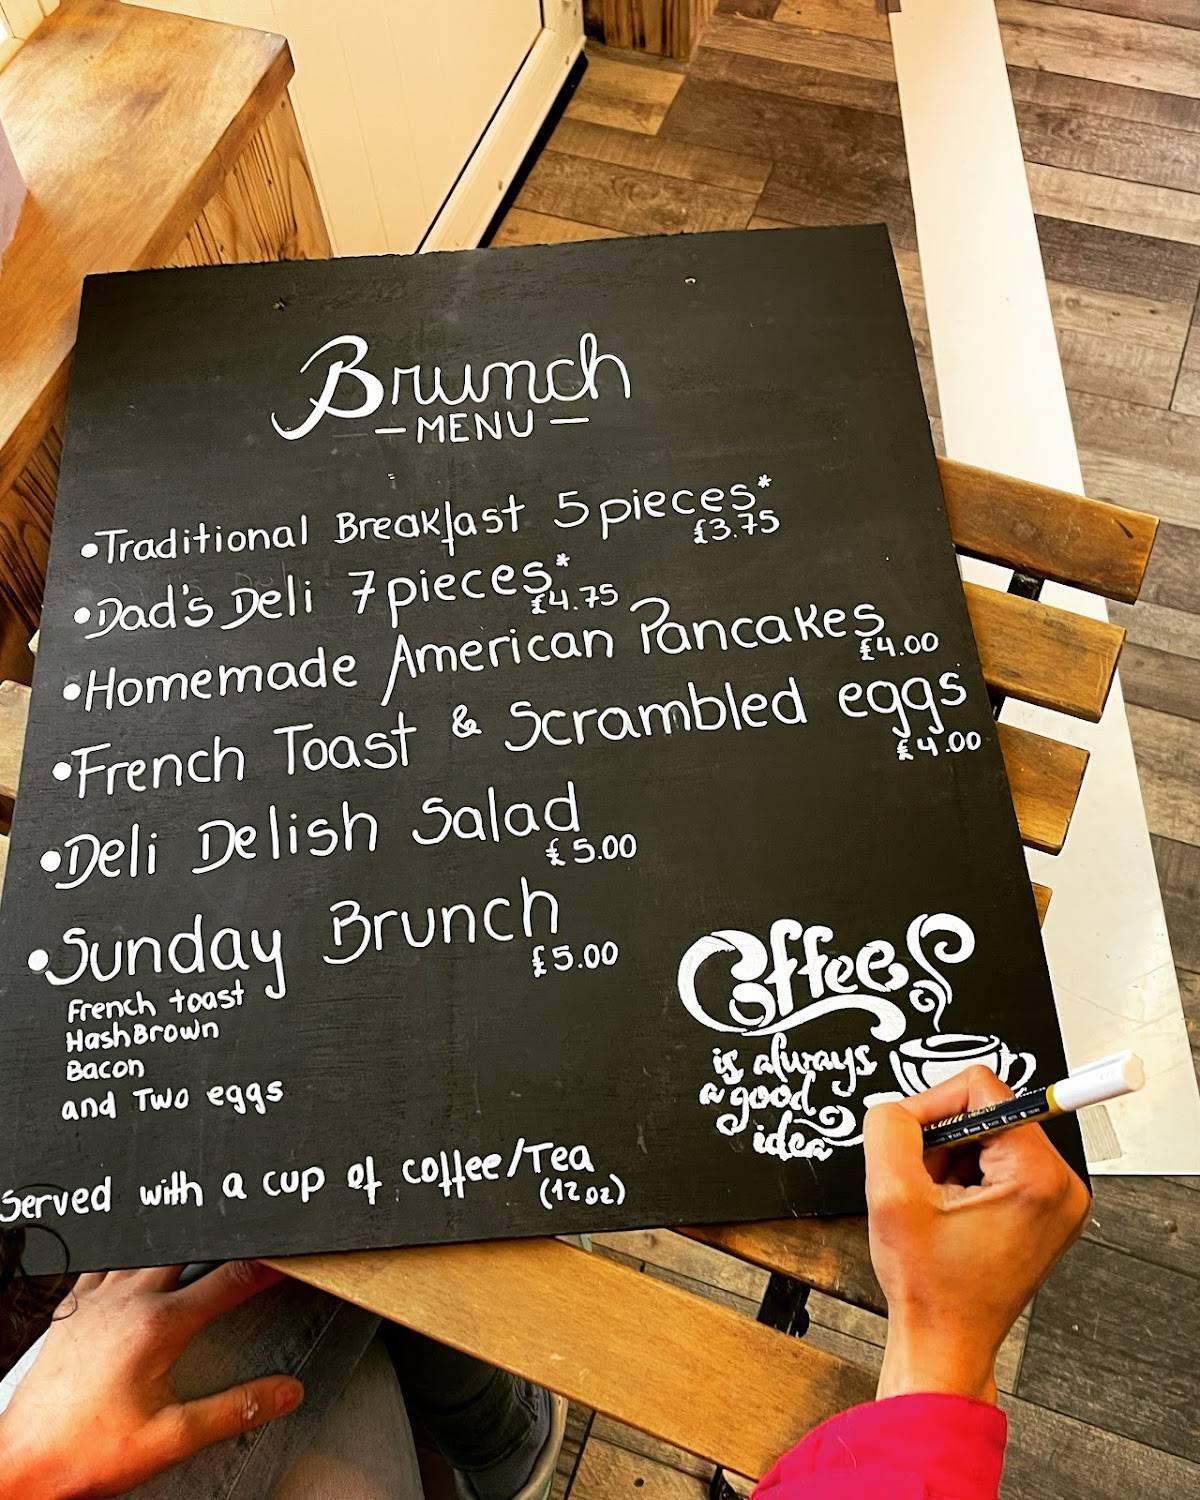 Brunch
— MENU —
• Traditional Breakfast 5 pieces*
£3.75
• Dad's Deli 7 pieces*
£4.75
• Homemade American Pancakes
£4.00
• French Toast & Scrambled eggs
£4.00
• Deli Delish Salad
£5.00
• Sunday Brunch
£5.00
French toast
HashBrown
Bacon
and Two eggs
Coffee
is always
a good
idea
Served with a cup of coffee/Tea
(12 oz)